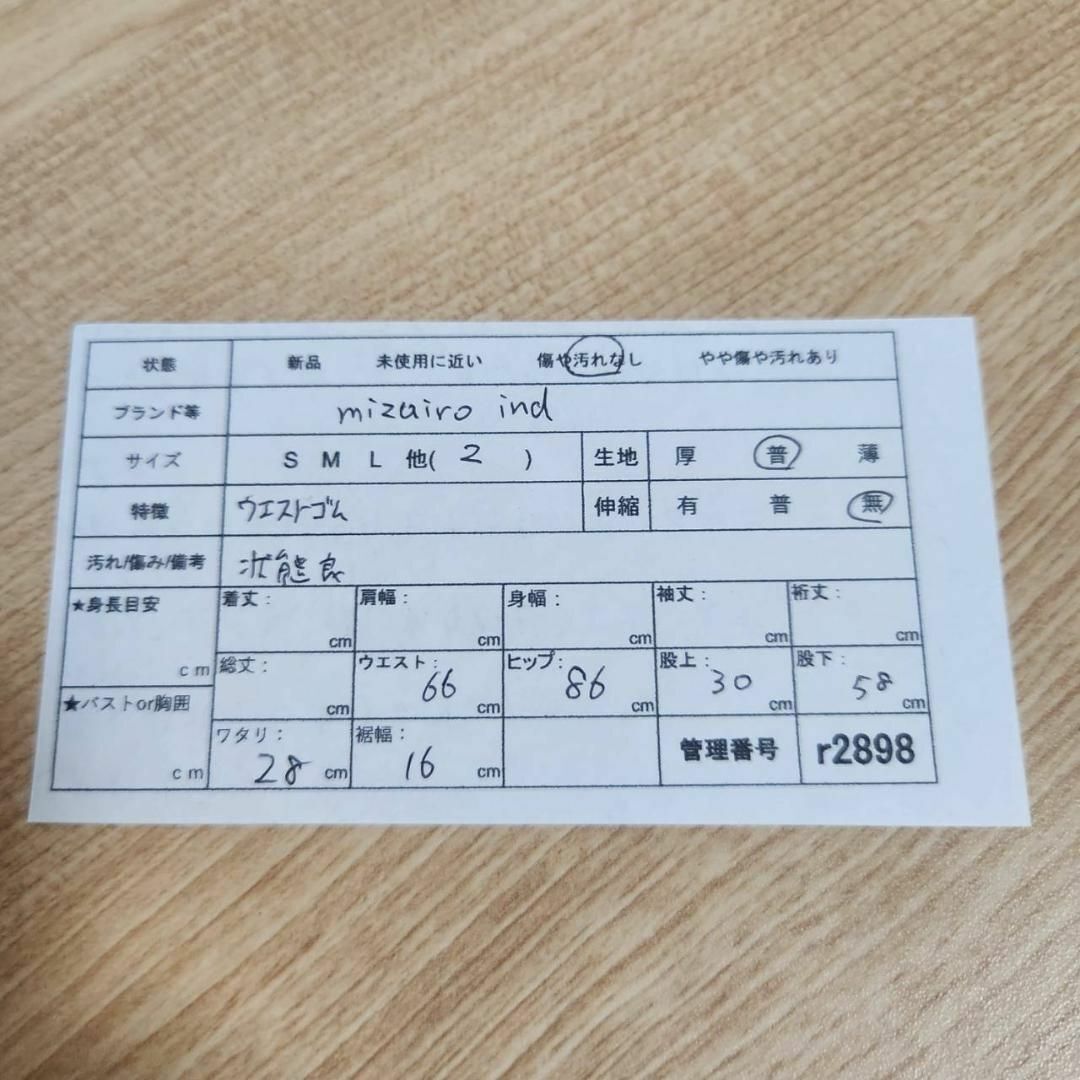 状態 新品 未使用に近い 傷や汚れなし やや傷や汚れあり
ブランド等 mizuiro ind
サイズ S M L 他( 2 ) 生地 厚 普 薄
特徴 ウエストゴム 伸縮 有 普 無
汚れ/傷み/備考 状態良
★身長目安 cm 着丈: cm 肩幅: cm 身幅: cm 袖丈: cm 裄丈: cm
総丈: cm ウエスト: 66 cm ヒップ: 86 cm 股上: 30 cm 股下: 58 cm
★バストor胸囲 cm ワタリ: 28 cm 裾幅: 16 cm 管理番号 r2898